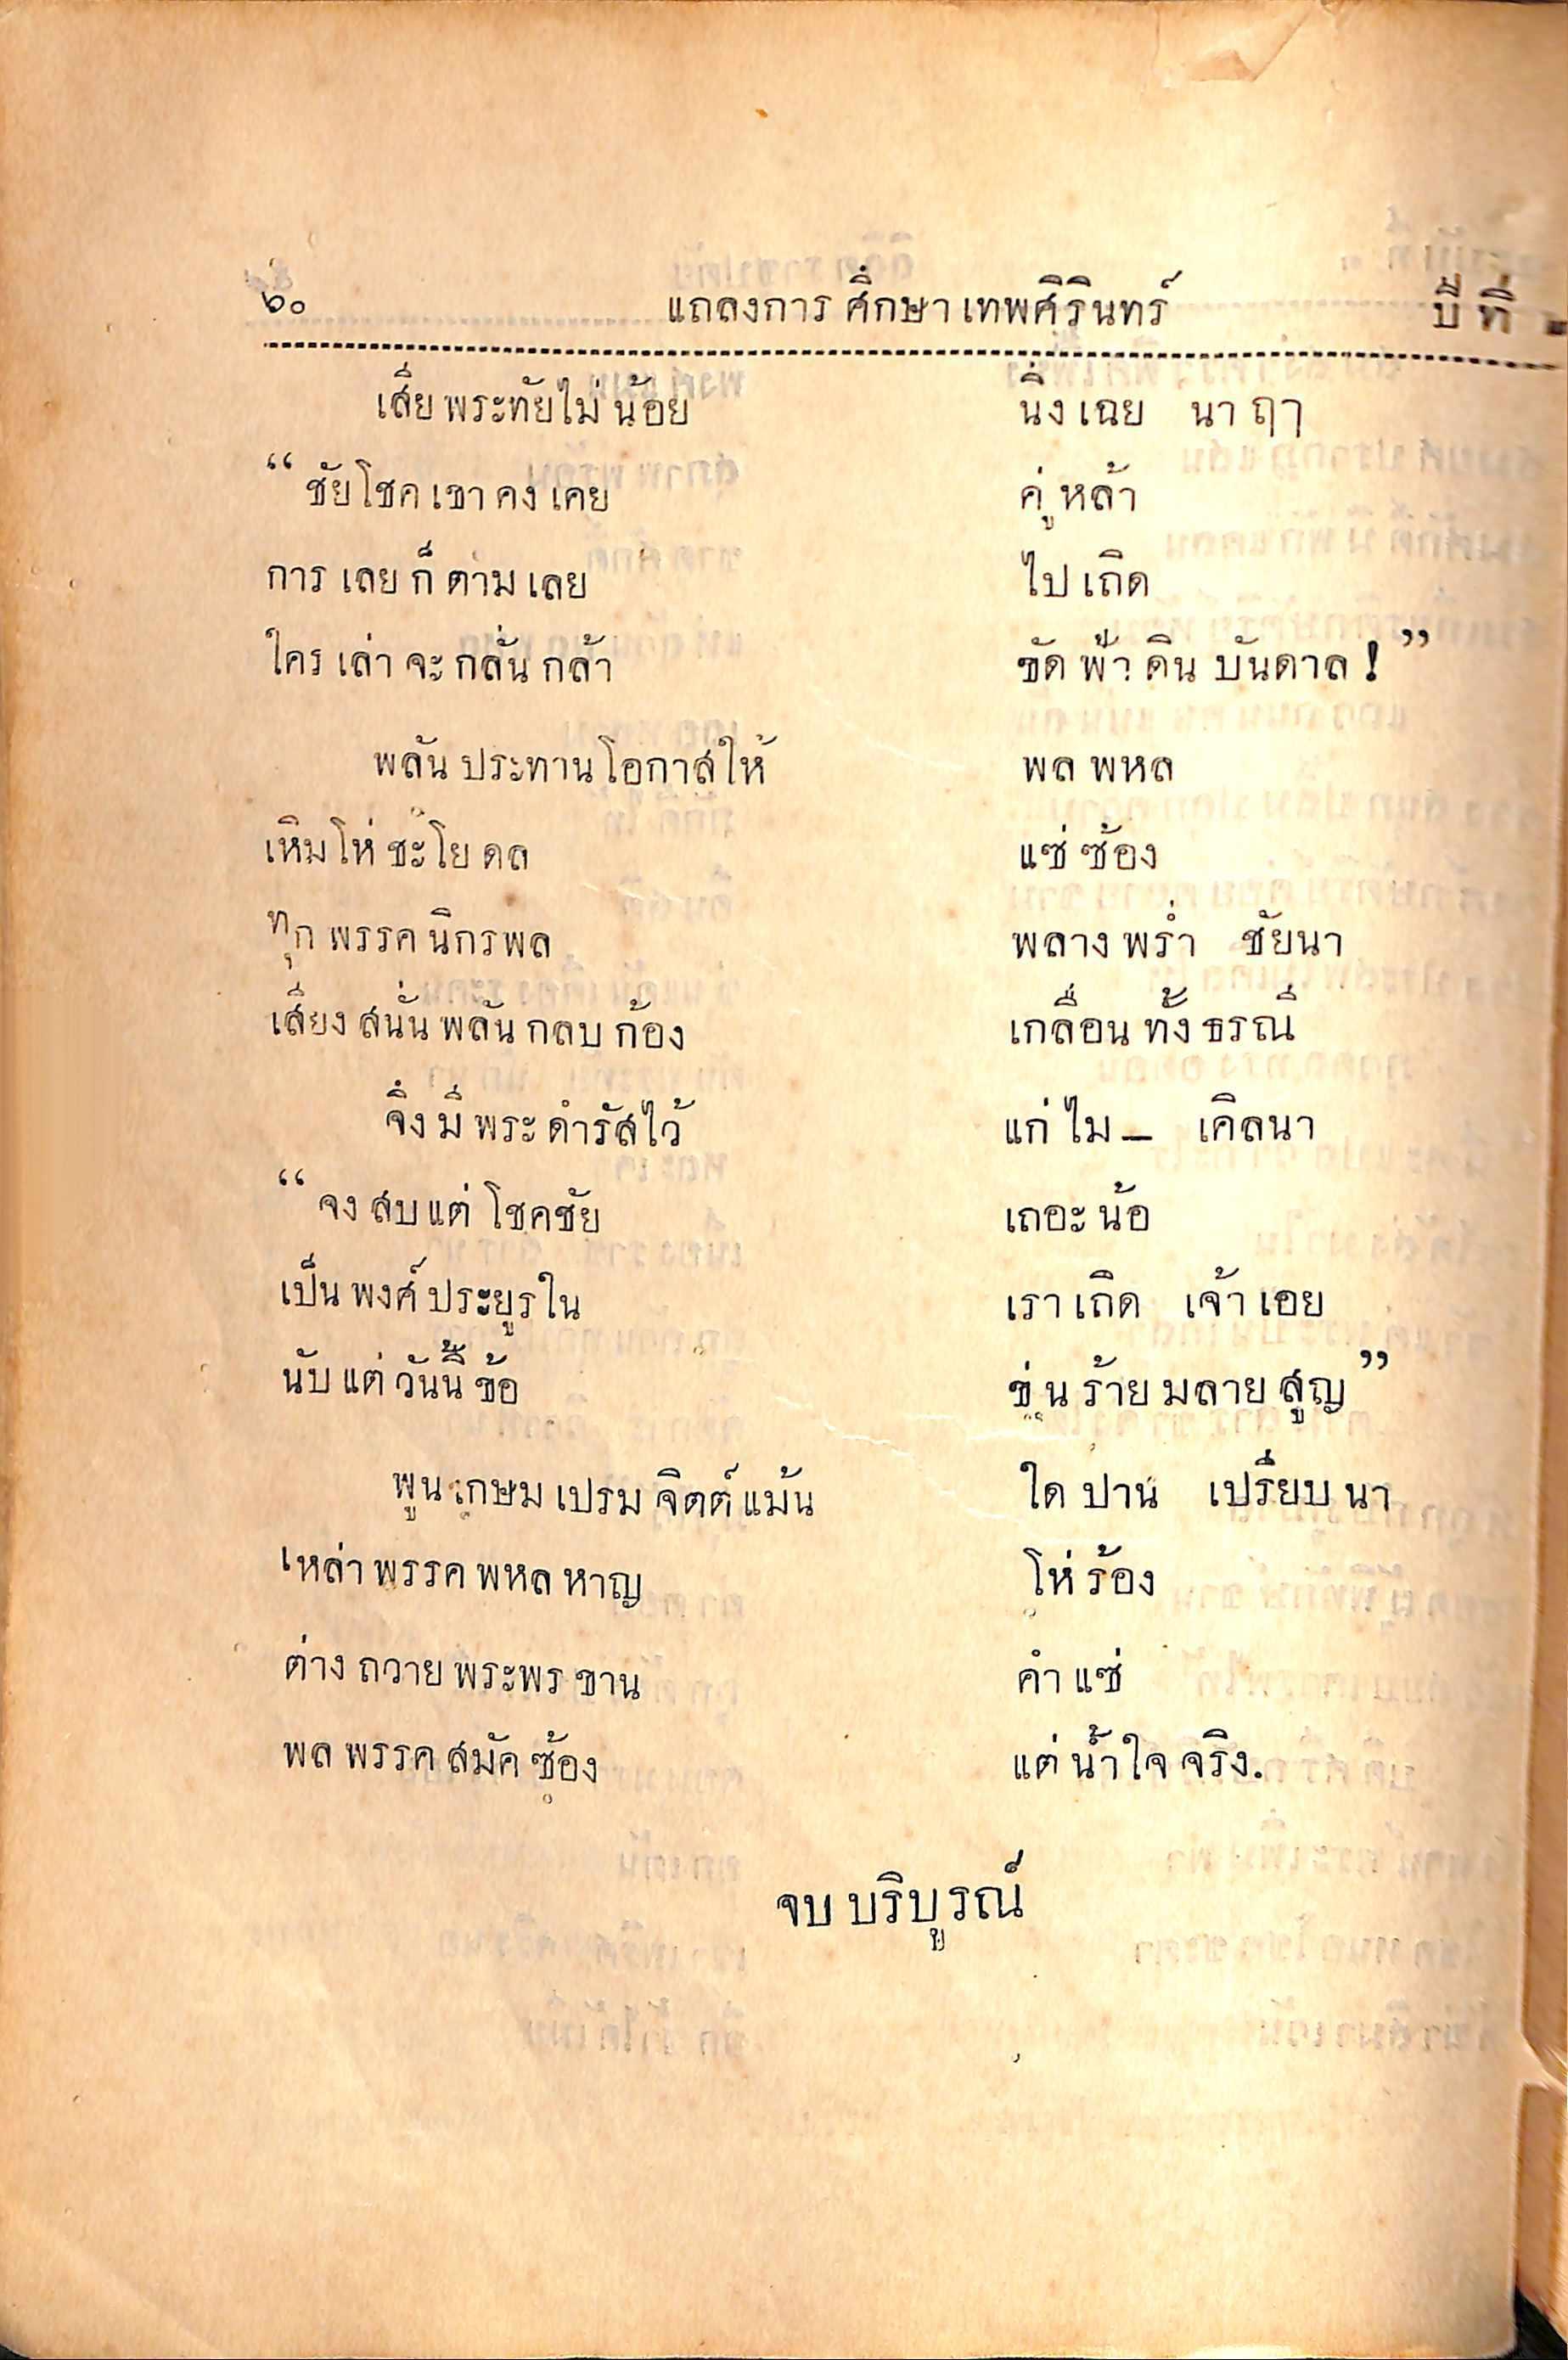 ๖๐ แถลงการศึกษาเทพศิรินทร์ ปีที่
เสียพระทัยไม่น้อย นิ่งเฉย นาฤๅ
“ชัยโชคเขาคงเคย คู่หล้า
การเลยก็ตามเลย ไปเถิด
ใครเล่าจะกลั่นกล้า ขัดฟ้าดินบันดาล!”
พลันประทานโอกาสให้ พลพหล
เหิมโห่ชะโยดล แซ่ซ้อง
ทุกพรรคนิกรพล พลางพร่ำ ชัยนา
เสียงสนั่นพลันกลบก้อง เกลื่อนทั้งธรณี
จึ่งมีพระดำรัสไว้ แก่ไม— เคิลนา
“จงสบแต่โชคชัย เถอะน้อ
เป็นพงศ์ประยูรใน เราเถิด เจ้าเอย
นับแต่วันนี้ข้อ ขุ่นร้ายมลายสูญ”
พูนเกษมเปรมจิตต์แม้น ใดปาน เปรียบนา
เหล่าพรรคพหลหาญ โห่ร้อง
ต่างถวายพระพรขาน คำแซ่
พลพรรคสมัคซ้อง แต่น้ำใจจริง.
จบบริบูรณ์